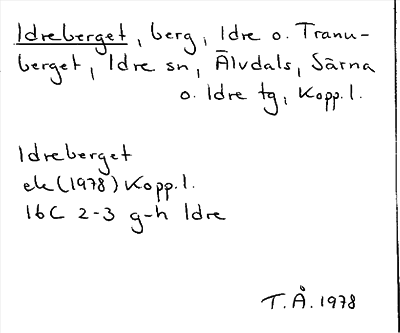 Idreberget, berg, Idre o. Tranu-
berget, Idre sn, Älvdals, Särna
o. Idre tg, Kopp. l.
Idreberget
ek (1978) Kopp. l.
16C 2-3 g-h Idre
T. Å. 1978